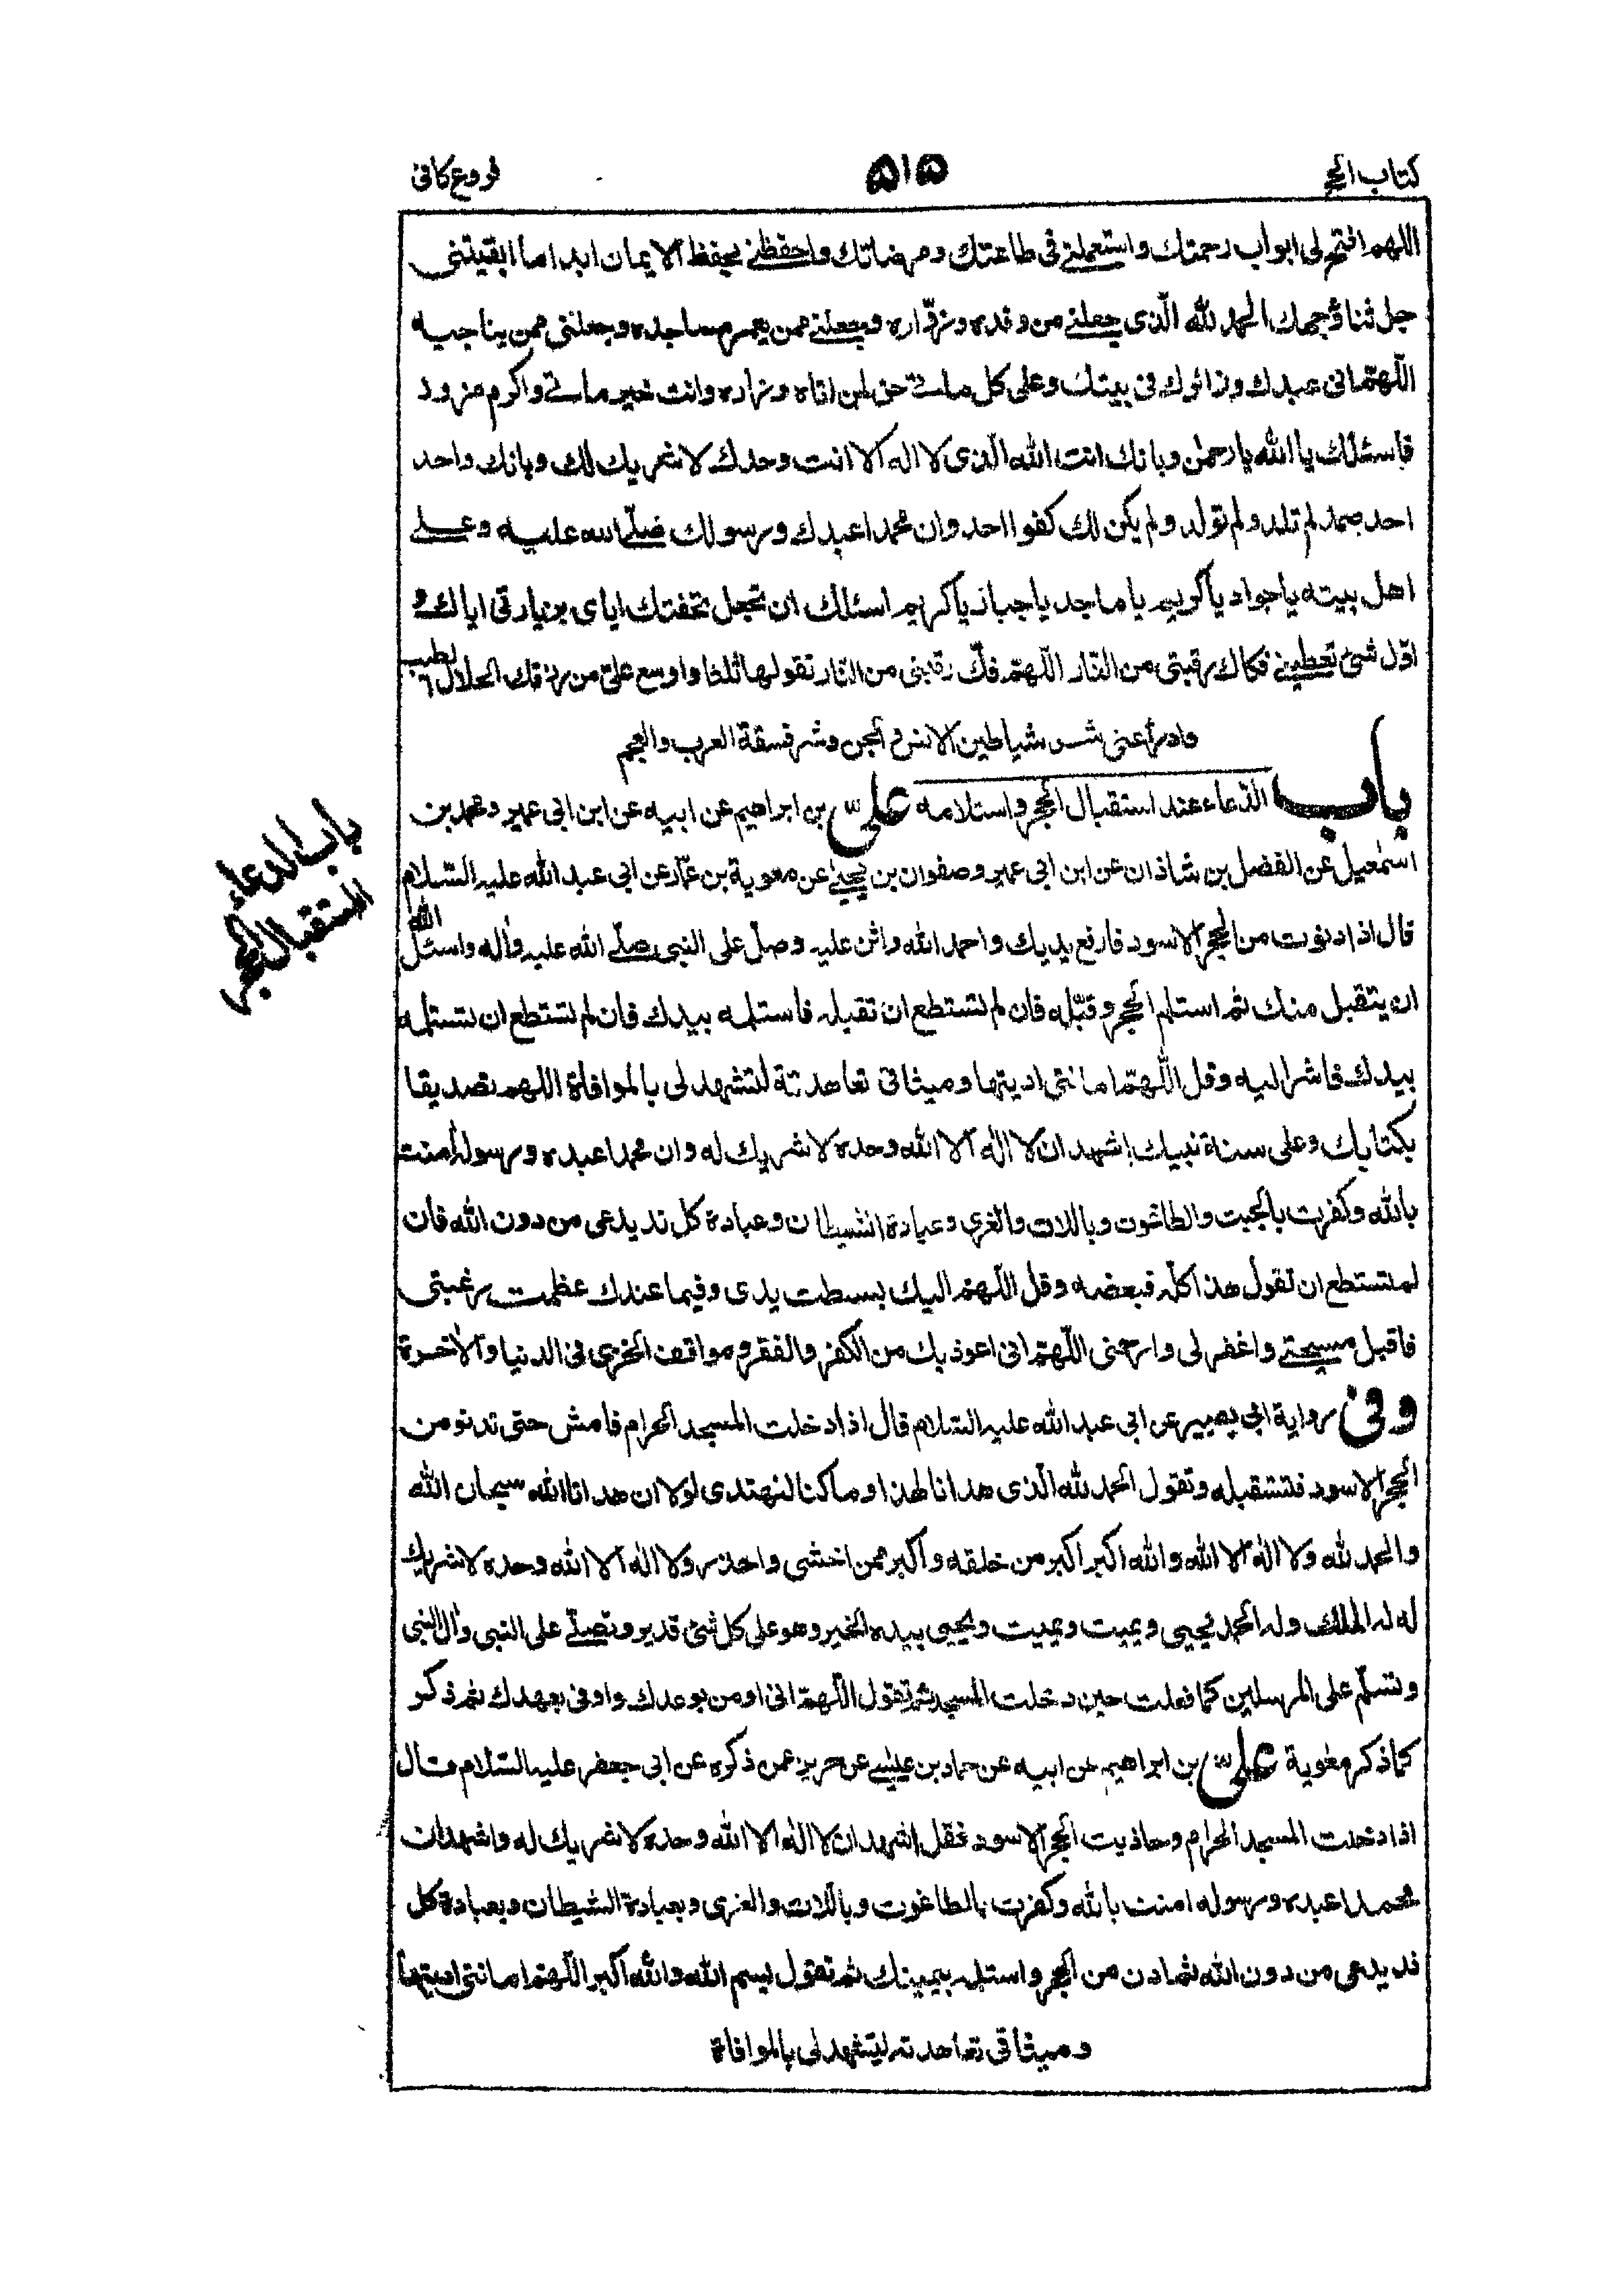 كتاب الحج
۵۱۵
فروع كافى
اللهم افتح لى ابواب رحمتك واستعملنى فى طاعتك ومرضاتك واحفظنى بحفظ الايمان ابدا ما ابقيتنى
جل ثناؤ وجهك الحمد لله الّذى جعلنى من وفده وزوّاره وجعلنى ممن يعمر مساجده وجعلنى ممن يناجيه
اللّهمّ انى عبدك وزائرك فى بيتك وعلى كل ماتى حق لمن اتاه وزاره وانت خير ماتى واكرم مزور
فاسئلك يا الله يا رحمن وبانك انت الله الّذى لا اله الا انت وحدك لا شريك لك وبانك واحد
احد صمد لم تلد ولم تولد ولم يكن لك كفوا احد وان محمدا عبدك ورسولك صلّى الله عليه وعلى
اهل بيته يا جواد يا كريم يا ماجد يا جبار يا كريم اسئلك ان تجعل تحفتك اياى بزيارتى اياك و
اوّل شئ تعطينى فكاك رقبتى من النّار اللّهمّ فكّ رقبتى من النّار تقولها ثلثا واوسع علىّ من رزقك الحلال الطيب
وادرأ عنى شر شياطين الانس و الجن وشر فسقة العرب والعجم
باب الدّعاء عند استقبال الحجر واستلامه علىّ بن ابراهيم عن ابيه عن ابن ابى عمير ومحمد بن
اسمعيل عن الفضل بن شاذان عن ابن ابى عمير وصفوان بن يحيى عن معوية بن عمّار عن ابى عبد الله عليه السّلام
قال اذا دنوت من الحجر الاسود فارفع يديك واحمد الله واثن عليه وصلّ على النبى صلّى الله عليه واله واسئل الله
ان يتقبل منك ثم استلم الحجر وقبّله فان لم تستطع ان تقبله فاستلمه بيدك فان لم تستطع ان تستلمه
بيدك فاشر اليه وقل اللّهمّ امانتى اديتها وميثاقى تعاهدته لتشهد لى بالموافاة اللهم تصديقا
بكتابك وعلى سنة نبيك اشهد ان لا اله الا الله وحده لا شريك له وان محمدا عبده ورسوله امنت
بالله وكفرت بالجبت والطاغوت وباللات والعزى وعبادة الشيطان وعبادة كل ند يدعى من دون الله فان
لم تستطع ان تقول هذا كلّه فبعضه وقل اللّهمّ اليك بسطت يدى وفيما عندك عظمت رغبتى
فاقبل مسيحتى واغفر لى وارحمنى اللّهمّ انى اعوذ بك من الكفر والفقر و مواقف الخزى فى الدنيا والاخرة
وفى رواية ابى بصير عن ابى عبد الله عليه السّلام قال اذا دخلت المسجد الحرام فامش حتى تدنو من
الحجر الاسود فتستقبله وتقول الحمد لله الّذى هدانا لهذا وما كنا لنهتدى لولا ان هدانا الله سبحان الله
والحمد لله ولا اله الا الله والله اكبر اكبر من خلقه واكبر ممن اخشى واحذر ولا اله الا الله وحده لا شريك
له له الملك وله الحمد يحيى ويميت ويميت ويحيى بيده الخير وهو على كل شئ قدير وتصلّى على النبى وال النبى
وتسلّم على المرسلين كما فعلت حين دخلت المسجد ثم تقول اللّهمّ انى اومن بوعدك واوفى بعهدك ثم ذكر
كما ذكر معوية علىّ بن ابراهيم عن ابيه عن حماد بن عيسى عن حريز عمن ذكره عن ابى جعفر عليه السّلام قال
اذا دخلت المسجد الحرام وحاذيت الحجر الاسود فقل اشهد ان لا اله الا الله وحده لا شريك له واشهد ان
محمدا عبده ورسوله امنت بالله وكفرت بالطاغوت وباللات والعزى وبعبادة الشيطان وبعبادة كل
ند يدعى من دون الله ثم ادن من الحجر واستلمه بيمينك ثم تقول بسم الله والله اكبر اللّهمّ امانتى اديتها
وميثاقى تعاهدته ليتشهد لى بالموافاة
باب الدعاء
استقبال الحجر